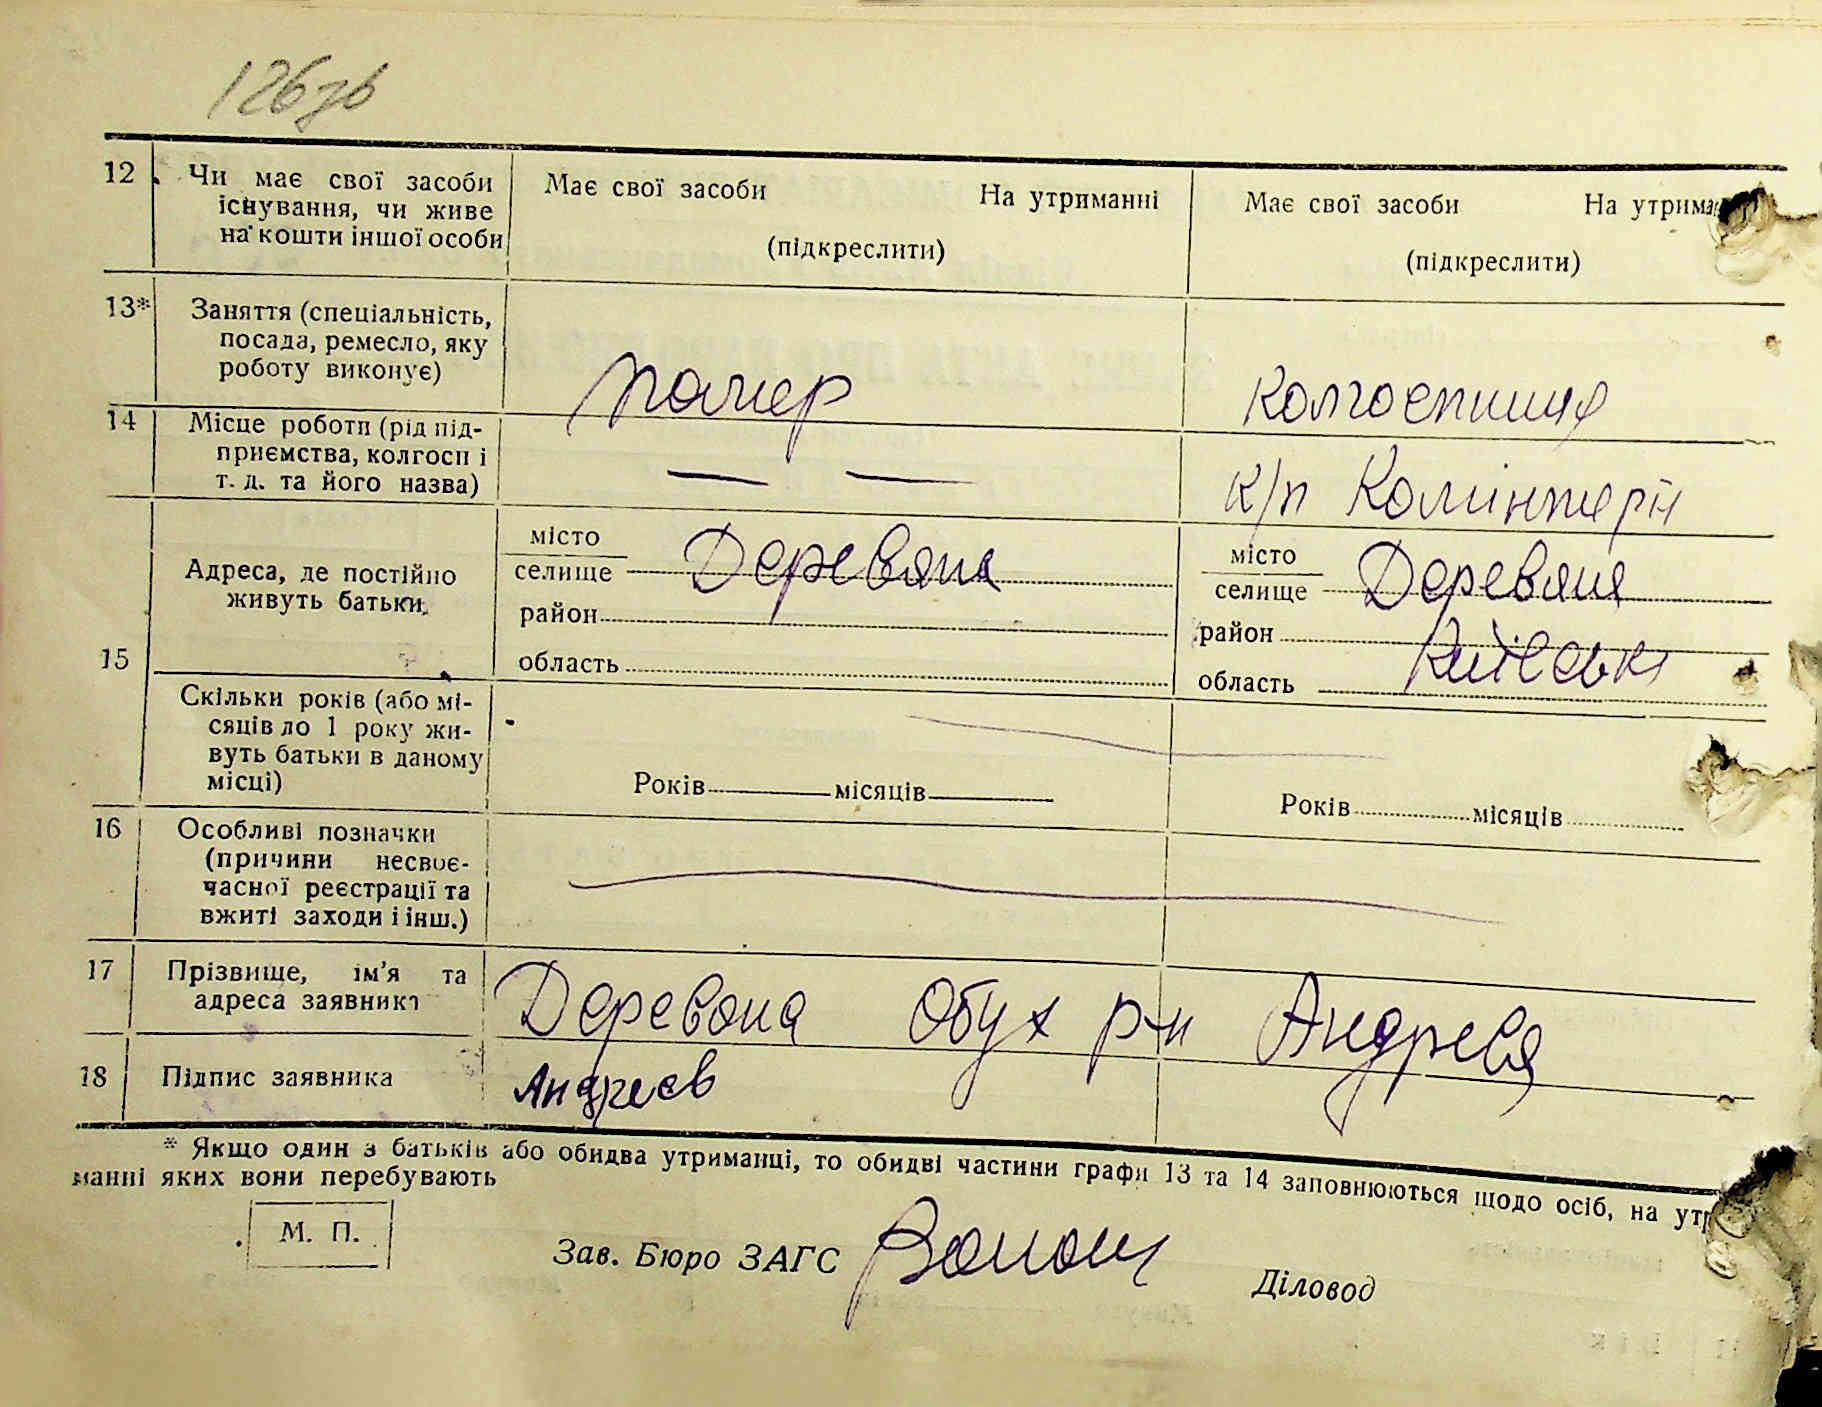 126зв
12 Чи має свої засоби існування, чи живе на кошти іншої особи
Має свої засоби На утриманні
(підкреслити)
Має свої засоби На утрима
(підкреслити)
13* Заняття (спеціальність, посада, ремесло, яку роботу виконує)
колгоспниця
14 Місце роботи (рід підприємства, колгосп і т. д. та його назва)
— —
к/п Комінтерн
15 Адреса, де постійно живуть батьки
місто
селище Деревяна
район
область
місто
селище Деревяна
район
область Київська
Скільки років (або місяців до 1 року живуть батьки в даному місці)
Років місяців
Років місяців
16 Особливі позначки (причини несвоєчасної реєстрації та вжиті заходи і інш.)
17 Прізвище, ім'я та адреса заявника
Деревяна Обух р-н Андреєв
18 Підпис заявника
Андреєв
* Якщо один з батьків або обидва утриманці, то обидві частини графи 13 та 14 заповнюються щодо осіб, на утр
манні яких вони перебувають
М. П.
Зав. Бюро ЗАГС
Діловод